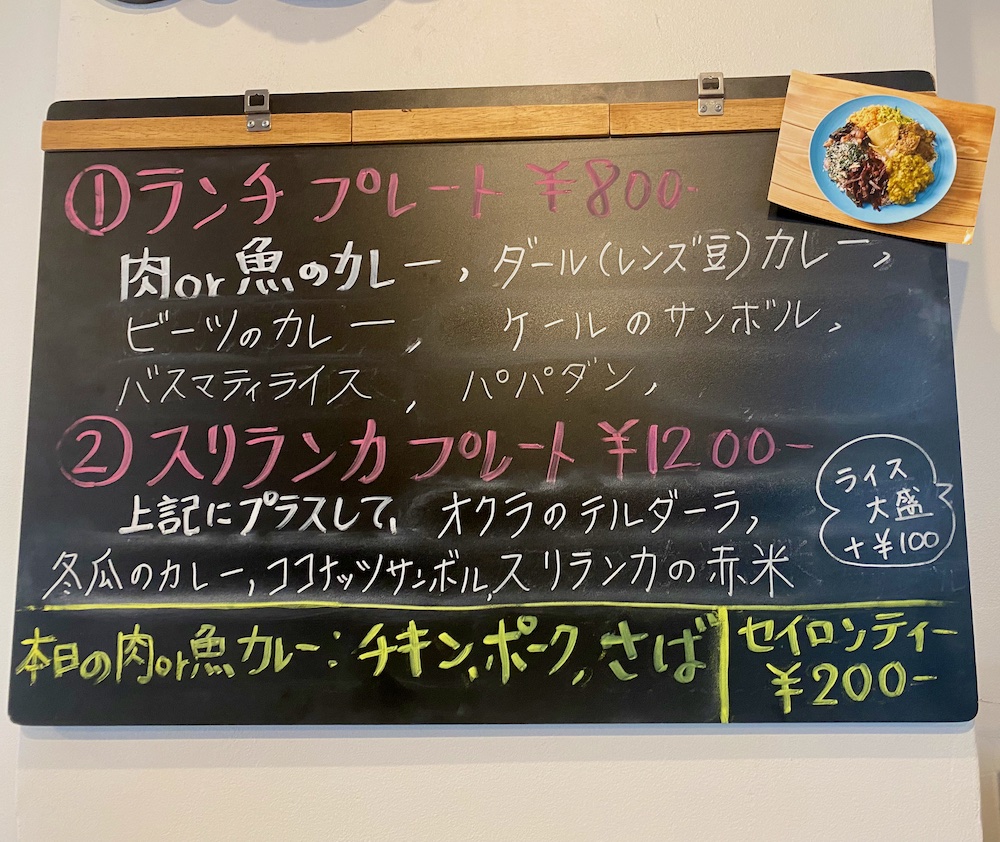 ①ランチプレート ¥800-
肉or魚のカレー, ダール(レンズ豆)カレー,
ビーツのカレー, ケールのサンボル,
バスマティライス, パパダン,
②スリランカプレート ¥1200-
上記にプラスして, オクラのテルダーラ,
冬瓜のカレー, ココナッツサンボル, スリランカの赤米
ライス
大盛
+¥100
本日の肉or魚カレー:チキン, ポーク, さば
セイロンティー
¥200-